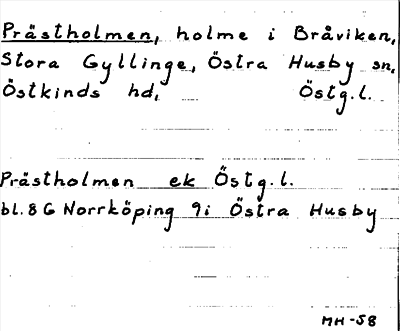 Prästholmen, holme i Bråviken,
Stora Gyllinge, Östra Husby sn,
Östkinds hd, Östg.l.
Prästholmen ek Östg.l.
bl. 8 G Norrköping 9i Östra Husby
MH-58